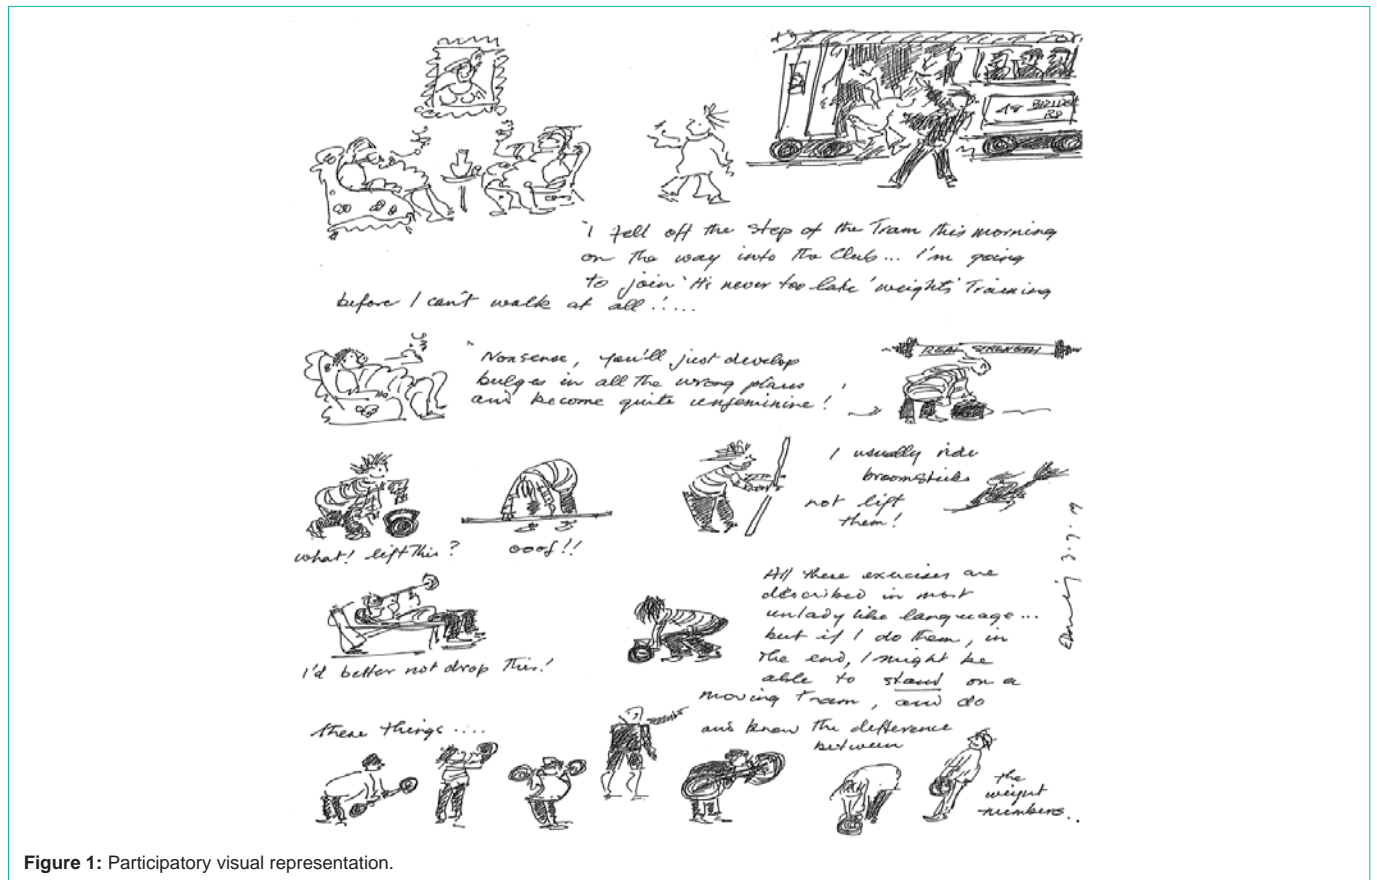 48 
"I fell off the step of the Tram this morning
on the way into the Club... I'm going
to join 'It's never too late' weights Training
before I can't walk at all!....
"Nonsense, you'll just develop
bulges in all the wrong places
and become quite unfeminine!
REAL STRENGTH
I usually ride
broomsticks
not lift
them!
what! lift this?
ooof!!
All these exercises are
described in most
unlady like language...
but if I do them, in
the end, I might be
able to stand on a
moving Tram, and do
I'd better not drop this!
these things....
and know the difference
between
the
weight
numbers..
Figure 1: Participatory visual representation.